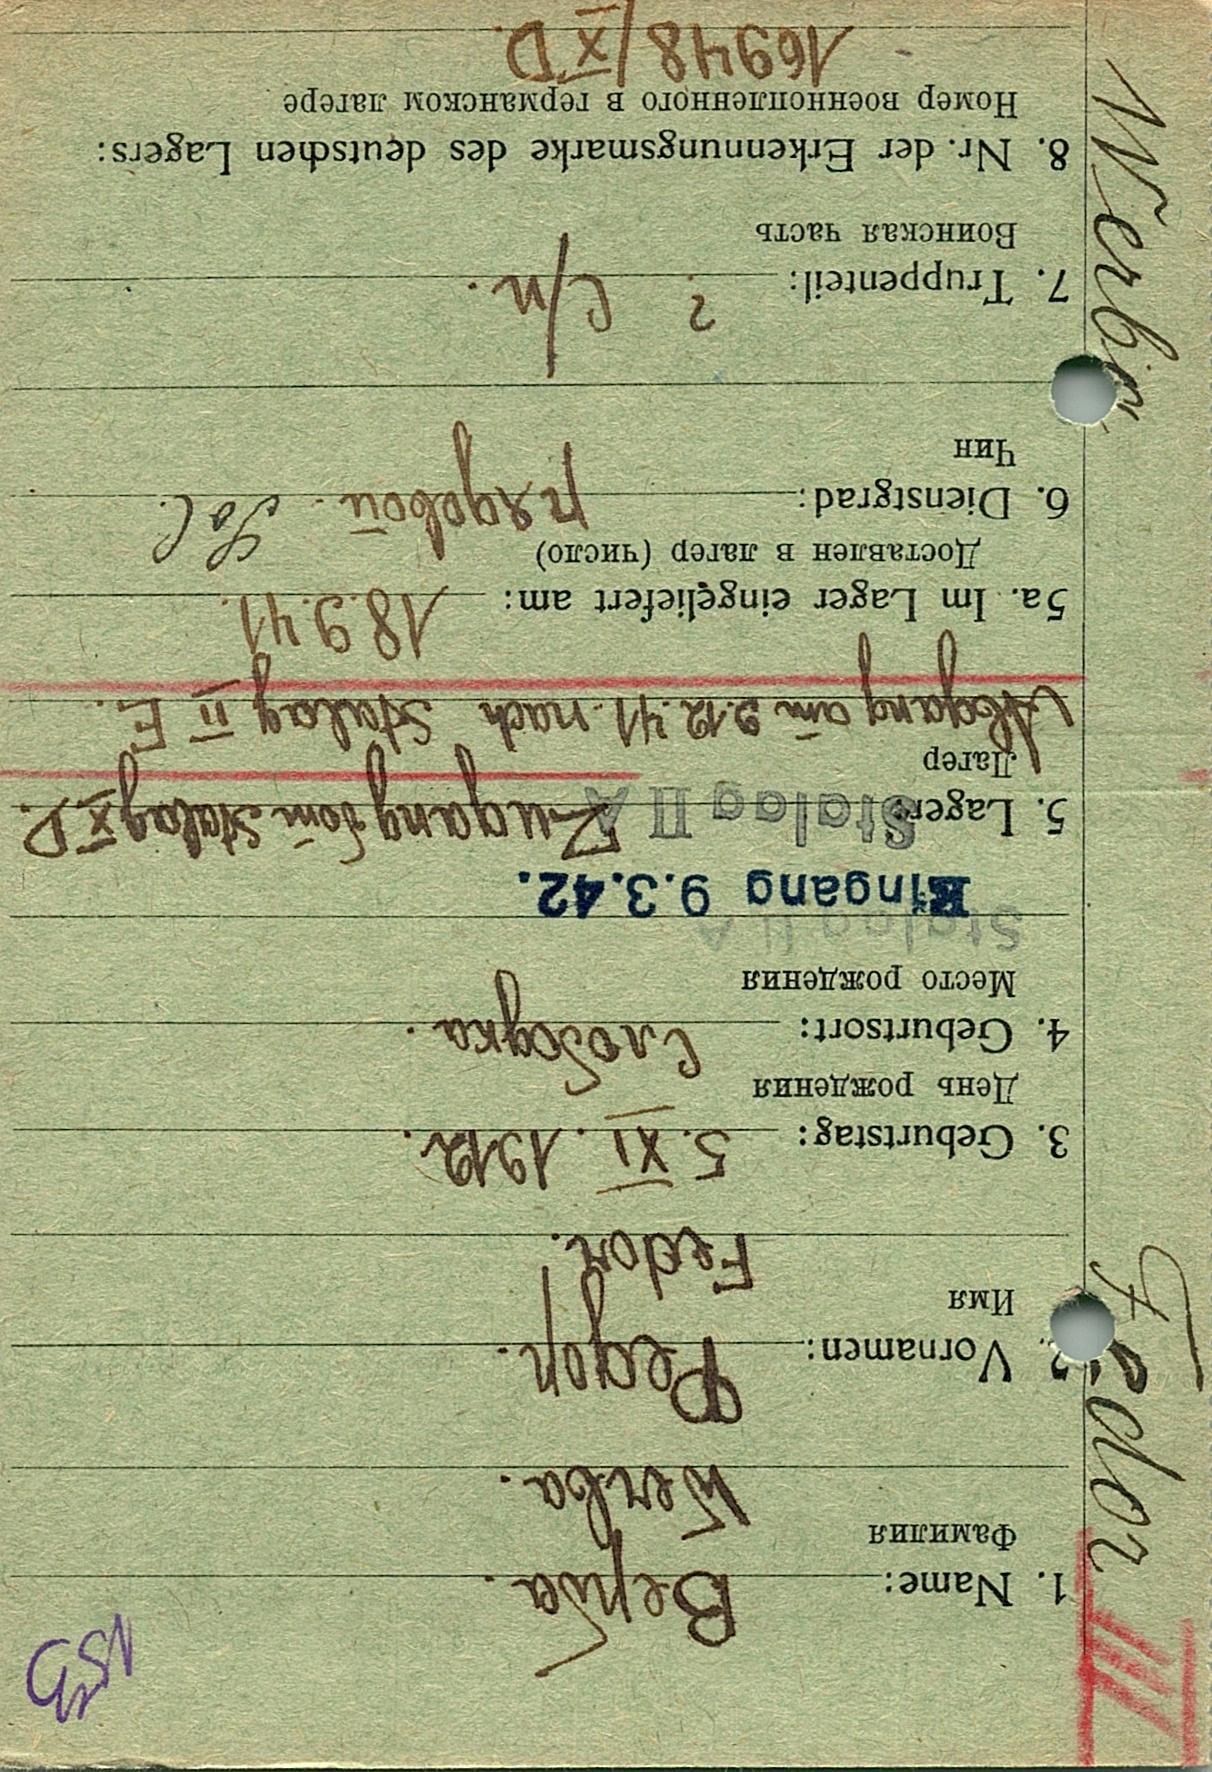 Werba Fedor
III
153
1. Name: Верба.
Фамилия
Werba.
2. Vornamen: Федор.
Имя
Fedor.
3. Geburtstag: 5. XI. 1912.
День рождения
4. Geburtsort: Слободка.
Место рождения
Stalag II A
Eingang 9.3.42.
5. Lager: Stalag II A Zugang vom Stalag XD.
Лагер
Abgang am 9.12.41. nach Stalag II E.
5a. Im Lager eingeliefert am: 18.9.41.
Доставлен в лагер (число)
6. Dienstgrad: рядовой. Sol.
Чин
7. Truppenteil: ? с/п.
Воинская часть
8. Nr. der Erkennungsmarke des deutschen Lagers:
Номер военнопленного в германском лагере
16948/XD.